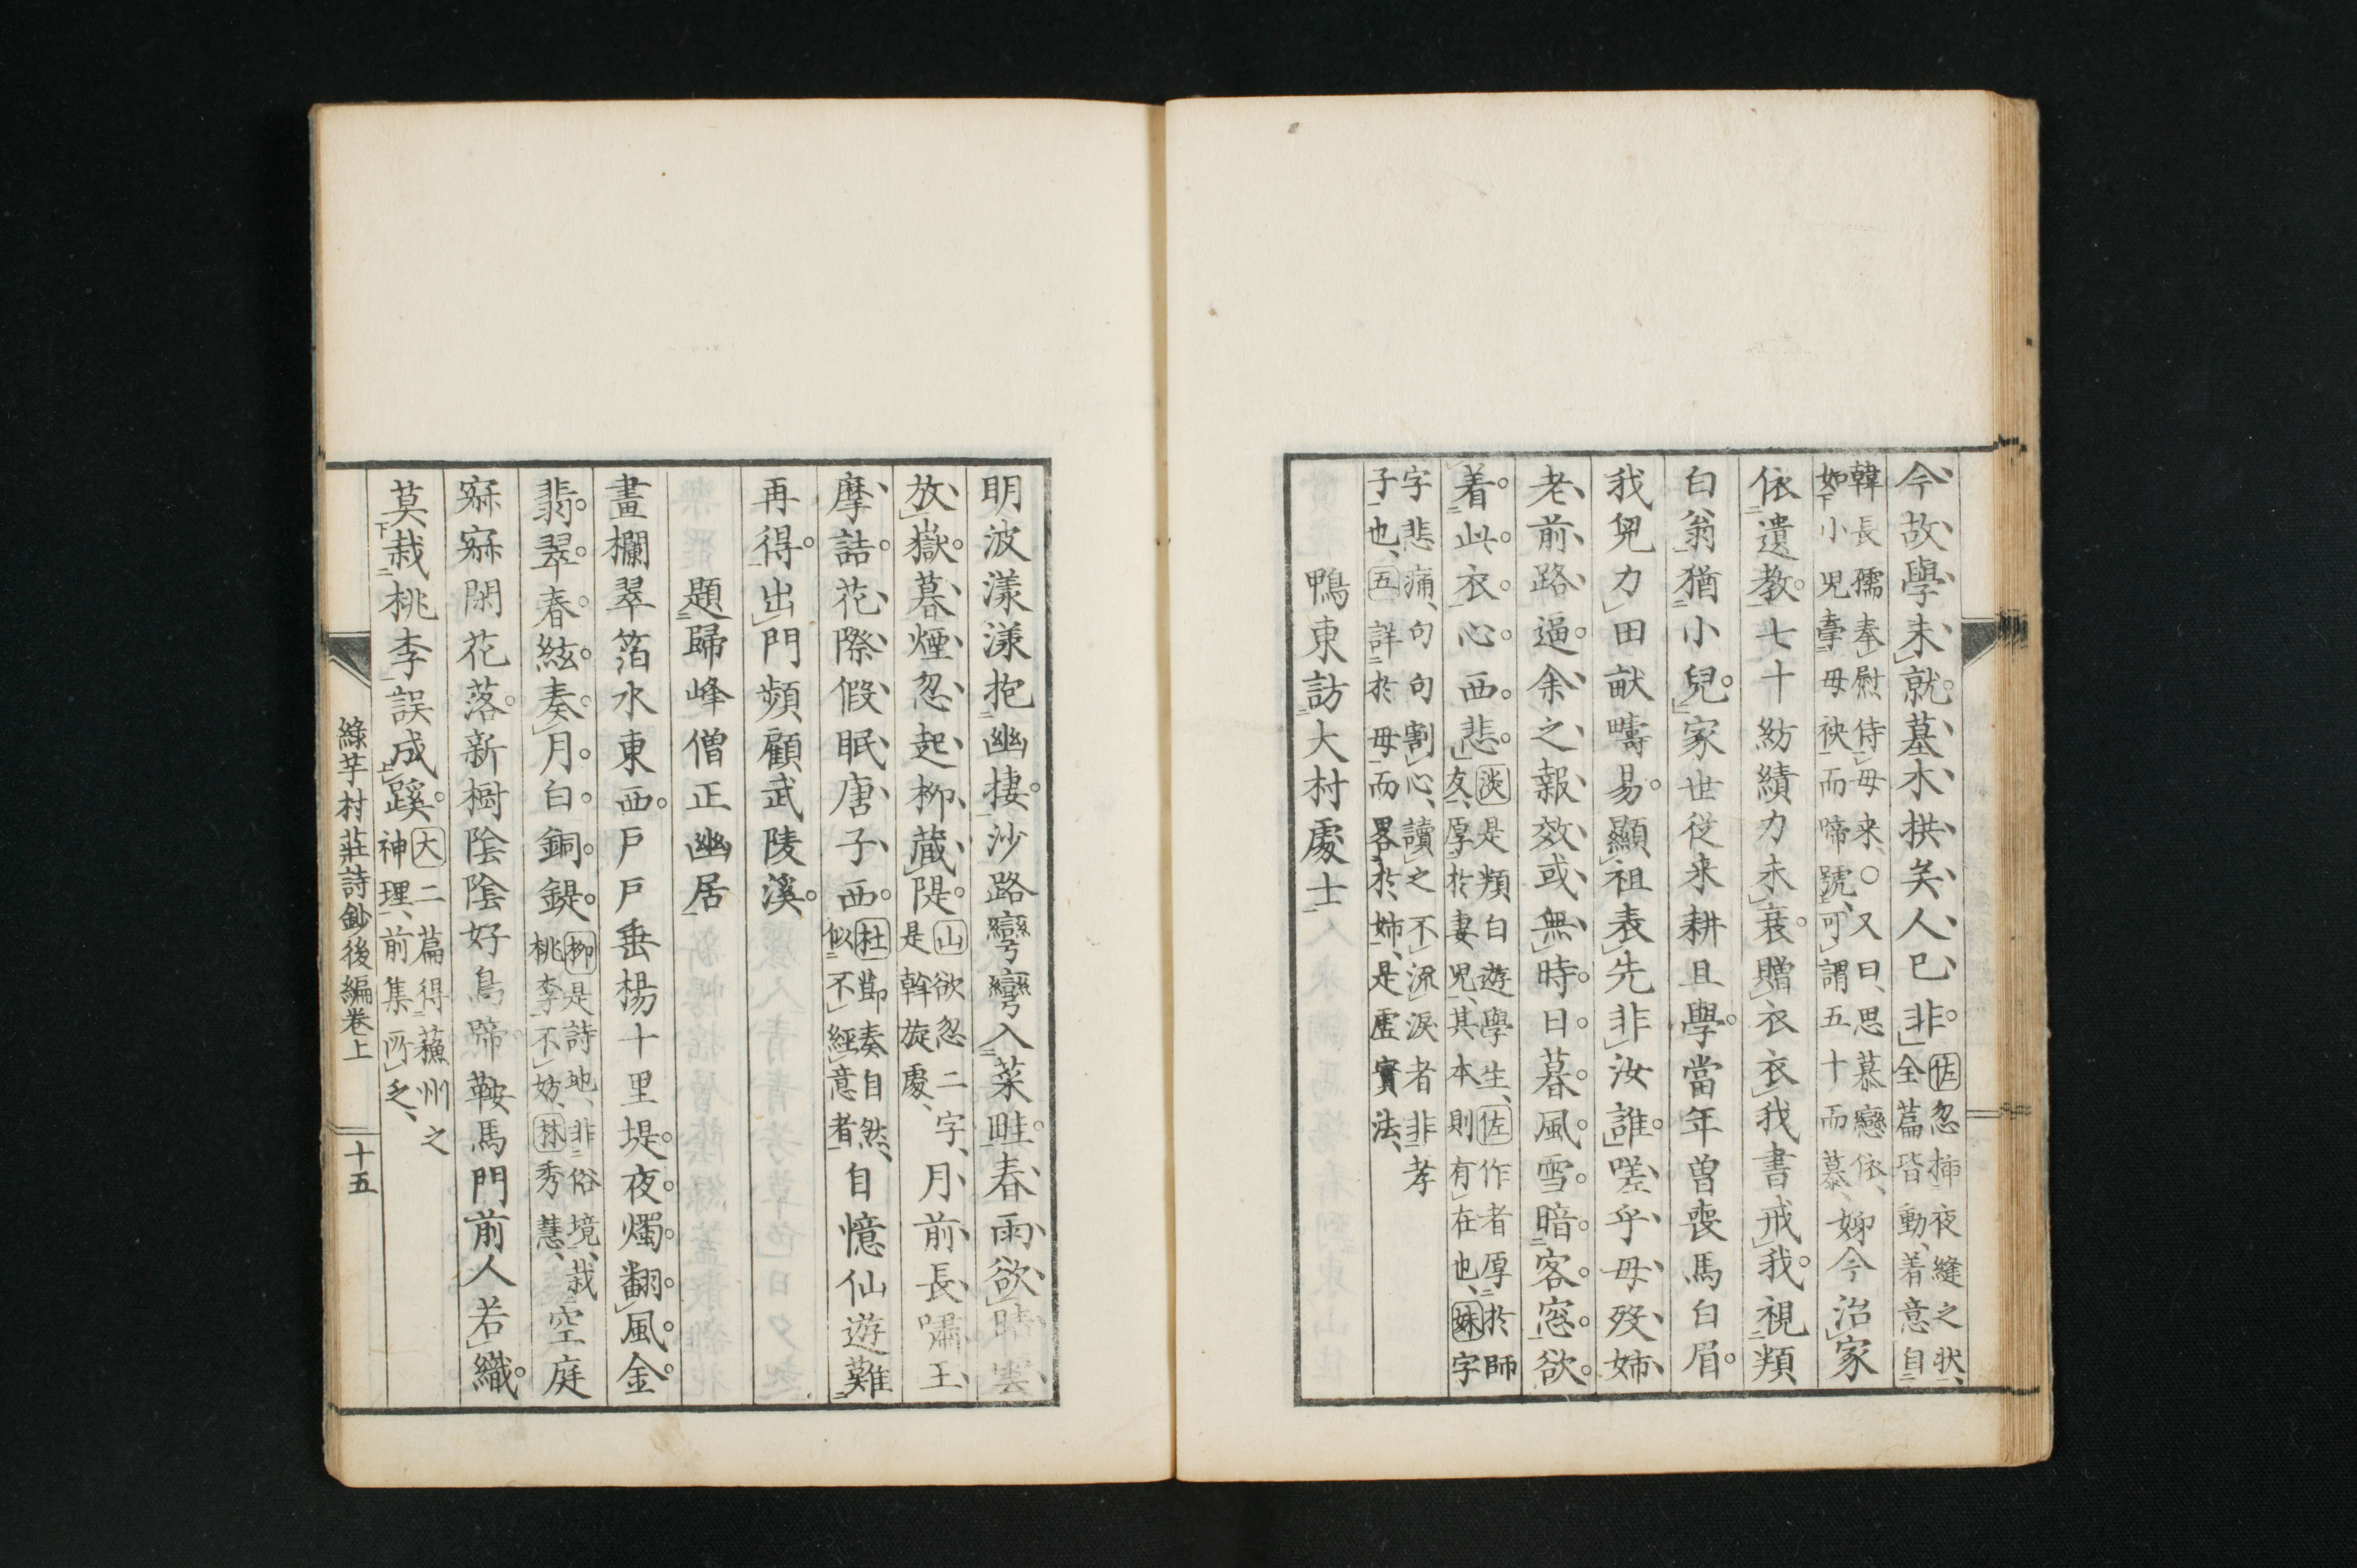 今故學未就墓木拱矣人已非
佐忽挿夜縫之状
全篇皆動着意自
韓長孺奉慰侍母来○又曰思慕戀依
如小児牽母袂而啼號可謂五十而慕
姉今治家
依遺教七十紡績力未衰贈衣衣我書戒我視類
白翁猶小兒家世従来耕且學當年曽喪馬白眉
我兒力田畝疇易顯祖表先非汝誰嗟乎母歿姉
老前路逼余之報效或無時日暮風雪暗客窓欲
着此衣心西悲
淡是類白遊學生佐作者厚於師
友厚於妻児其本則有在也妹字
字悲痛句句割心讀之不流涙者非孝
子也五詳於母而畧於姉是虚實法
鴨東訪大村處士
明波漾漾抱幽棲沙路彎彎入菜畦春雨欲晴雲
放嶽暮煙忽起柳藏隄
山欲忽二字
是斡旋處
月前長嘯王
摩詰花際假眠唐子西
杜節奏自然
似不經意者
自憶仙遊難
再得出門頻顧武陵溪
題歸峰僧正幽居
畫欄翠箔水東西戸戸垂楊十里堤夜燭翻風金
翡翠春絃奏月白銅鍉
柳是詩地非俗境栽
桃李不妨林秀慧
空庭
寂寂閑花落新樹陰陰好鳥啼鞍馬門前人若織
莫栽桃李誤成蹊
大二篇得蘓州之
神理前集所乏
綠芋村莊詩鈔後編卷上
十五